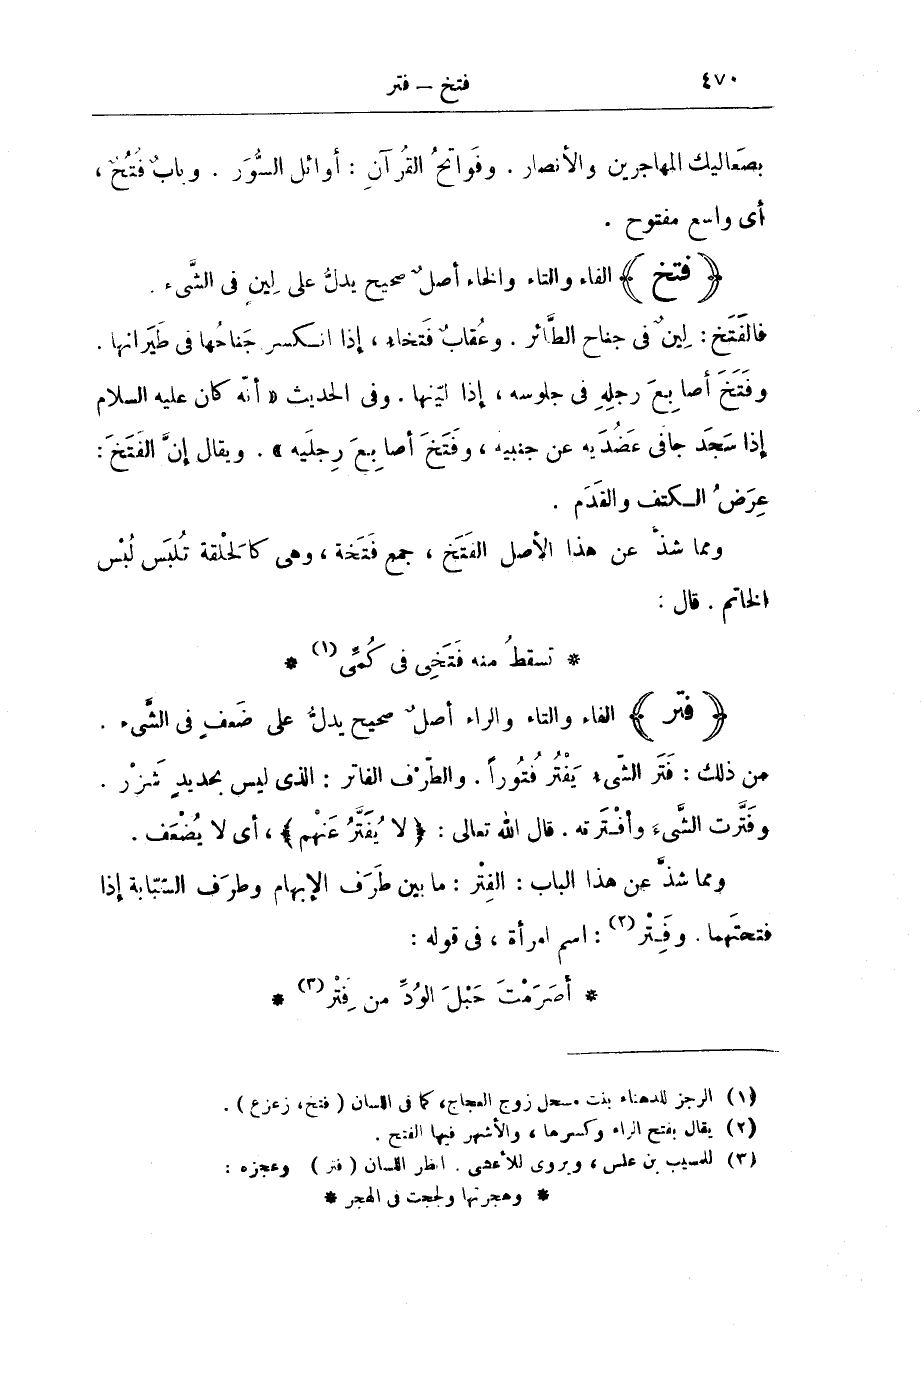 ٤٧٠
فتخ – فتر
بصَعاليك المهاجرين والأنصار . وفَواتحُ القُرآنِ : أوائل السُّوَر . وبابٌ فُتُحٌ ،
أى واسع مفتوح .
﴿ فتخ ﴾ الفاء والتاء والخاء أصلٌ صحيح يدلُّ على لِينٍ فى الشَّىء .
فالفَتَخ : لِينٌ فى جناح الطَّائر . وعُقابٌ فَتخاء ، إذا انكسر جَناحُها فى طَيَرانها .
وفَتَخَ أصابِعَ رجلِهِ فى جلوسه ، إذا ليّنها . وفى الحديث « أنّه كان عليه السلام
إذا سَجَد جافى عَضُدَيه عن جنبيه ، وفَتَخَ أصابِعَ رِجلَيه » . ويقال إنَّ الفَتَخَ :
عِرَضُ الكتف والقَدَم .
ومما شذَّ عن هذا الأصل الفَتَخ ، جمع فَتَخة ، وهى كالحَلْقة تُلبَس لُبْس
الخاتم . قال :
* تسقطُ منه فَتَخِى فى كُمِّى (١) *
﴿ فتر ﴾ الفاء والتاء والراء أصلٌ صحيح يدلُّ على ضَعفٍ فى الشَّىء .
من ذلك : فَتَر الشَّىء يَفْتُرُ فُتُوراً . والطَّرْف الفاتر : الذى ليس بحديدٍ شَزْر .
وفَتَّرت الشَّىءَ وأفْتَرته . قال الله تعالى : ﴿ لا يُفَتَّرُ عَنْهم ﴾ ، أى لا يُضْعَف .
ومما شذَّ عن هذا الباب : الفِتْر : ما بين طَرَف الإبهام وطرَف السَّبّابة إذا
فتحتَهما . وفَِتْر (٢) : اسم امرأة ، فى قوله :
* أصَرَمْتَ حَبْلَ الوُدِّ من فَِتْر (٣) *
(١) الرجز للدهناء بنت مسحل زوج العجاج، كما فى اللسان ( فتخ، زعزع ) .
(٢) يقال بفتح الراء وكسرها ، والأشهر فيها الفتح .
(٣) للمسيب بن علس ، ويروى للأعشى . انظر اللسان ( فتر ) وعجزه :
* وهجرتها ولججت فى الهجر *